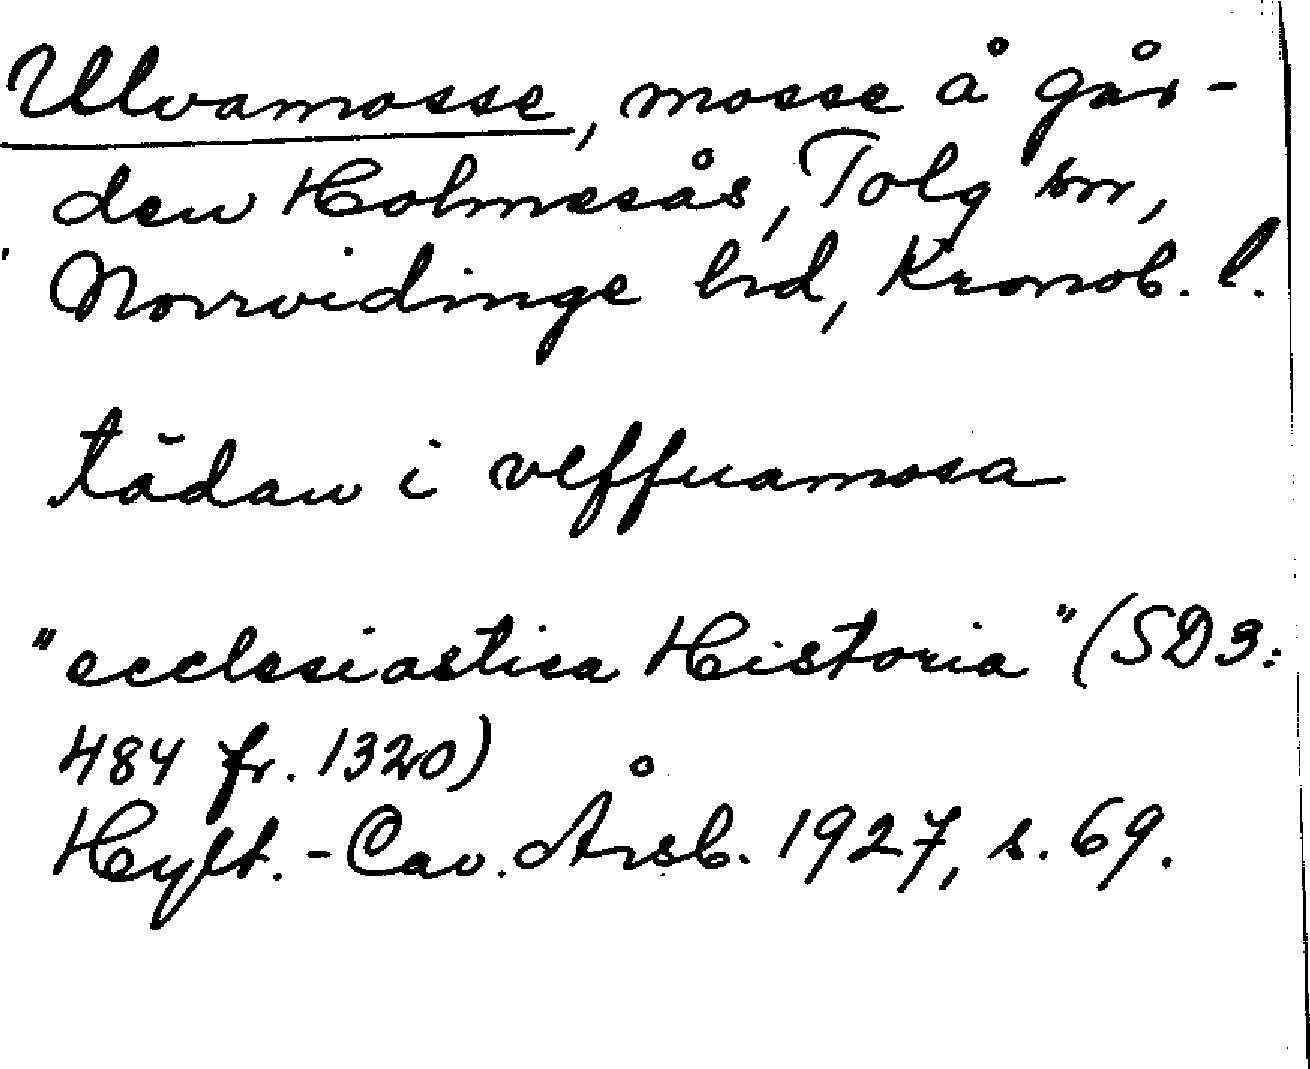 Ulvamosse, mosse å går-
den Holmesås, Tolg sn,
Norrvidinge hd, Kronob. l.
tådan i vlffuamosa
"ecclesiastica Historia" (SD3:
484 fr. 1320)
Hylt.-Cav. Årsb. 1927, s. 69.